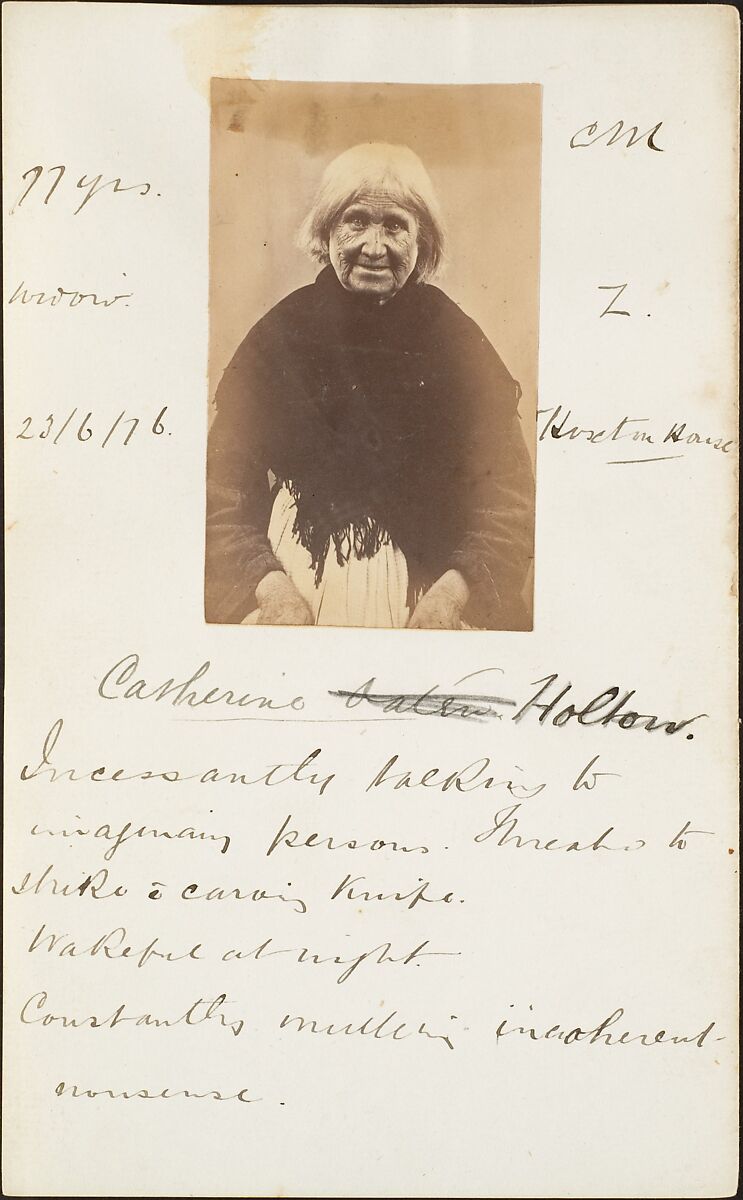 CM
77 yrs.
Widow.
Z.
23/6/76.
Hoxton House
Catherine Holtow.
Incessantly talking to
imaginary persons. Threatens to
strike c̄ carving Knife.
Wakeful at night.
Constantly muttering incoherent
nonsense.